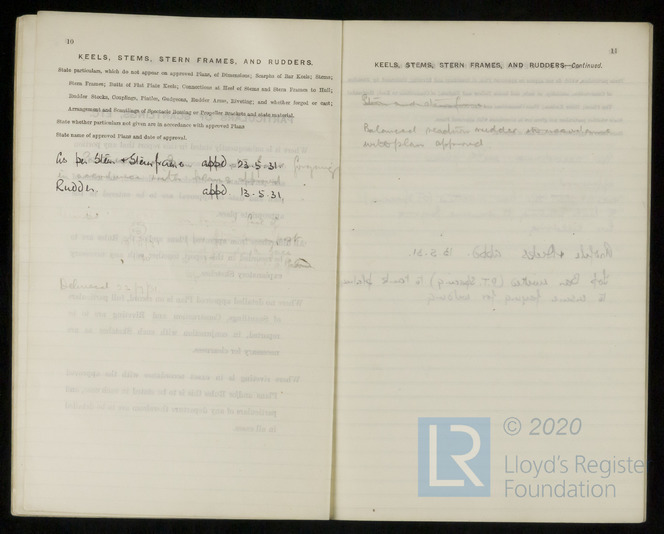 10
KEELS, STEMS, STERN FRAMES, AND RUDDERS.
State particulars, which do not appear on approved Plans, of Dimensions; Scarphs of Bar Keels; Stems;
Stern Frames; Butts of Flat Plate Keels; Connections at Heel of Stems and Stern Frames to Hull;
Rudder Stocks, Couplings, Pintles, Gudgeons, Rudder Arms, Riveting; and whether forged or cast;
Arrangement and Scantlings of Spectacle Bossing or Propeller Brackets and state material.
State whether particulars not given are in accordance with approved Plans
State name of approved Plans and date of approval.
As per Stem & Sternframe appd 23.5.31.
Rudder. appd 13.5.31.
11
KEELS, STEMS, STERN FRAMES, AND RUDDERS—Continued.
Stem and sternframe
Balanced rudder
with plan approved
© 2020
LR
Lloyd's Register
Foundation